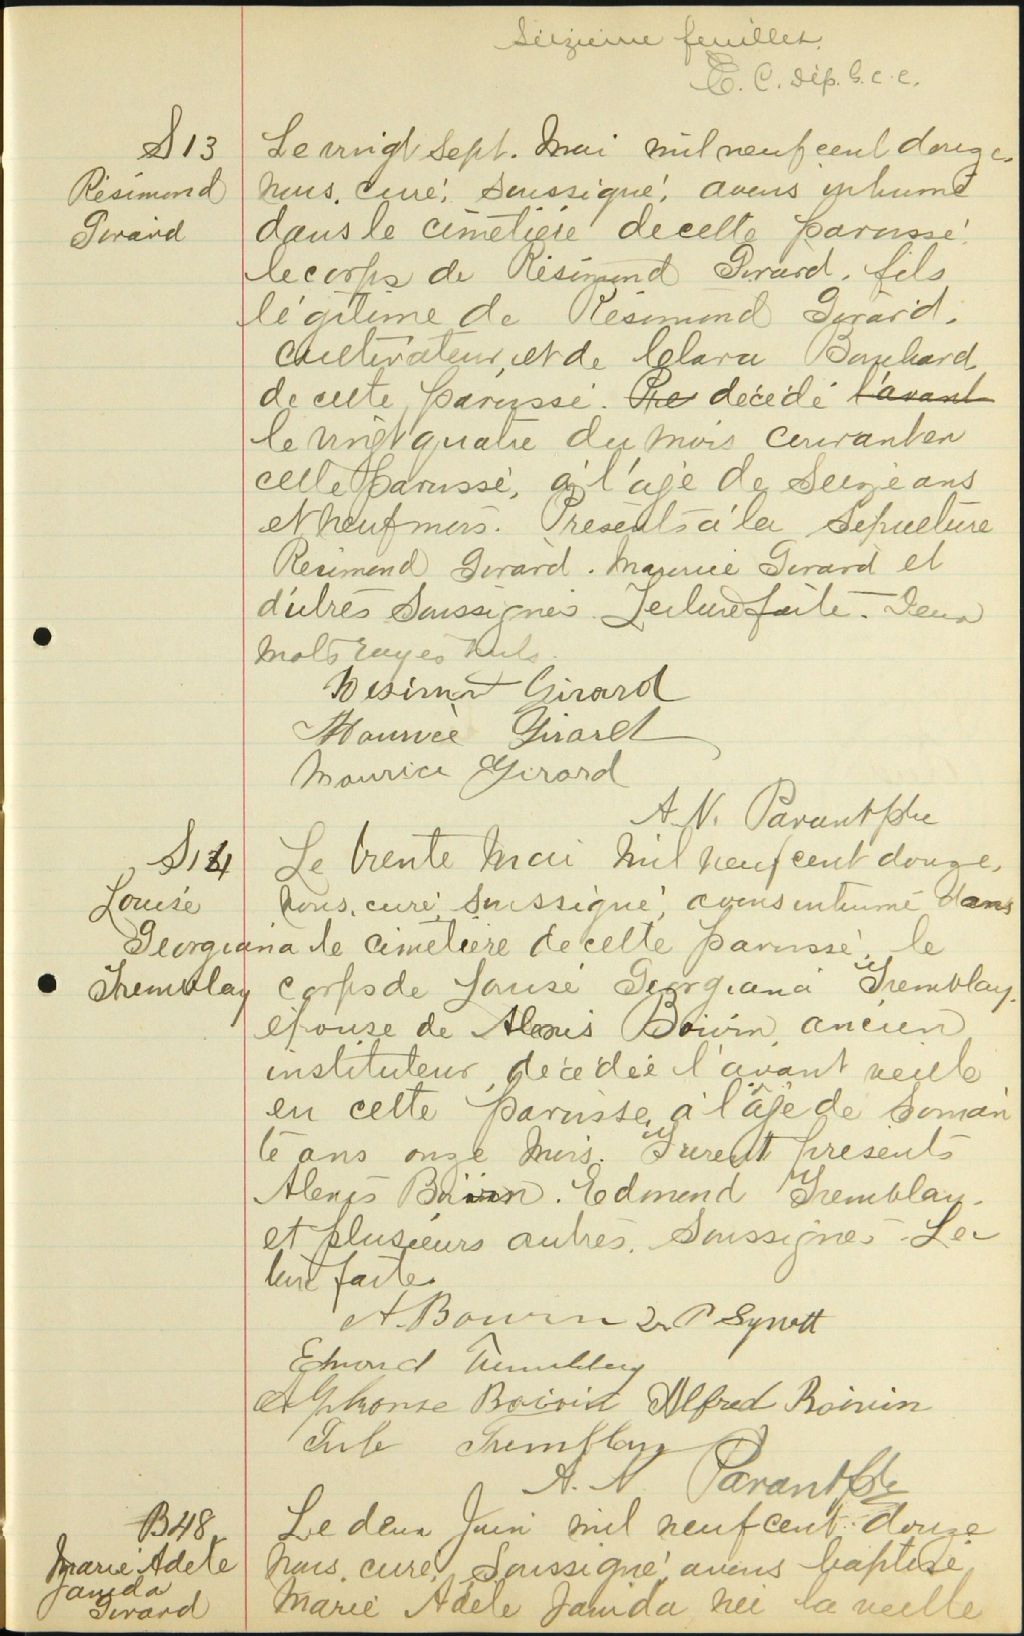 Seizieme feuillet.
E. C. Dép. G. C. C.
S 13
Résimond
Girard
Le vingt sept. Mai mil neuf cent douze,
nous, curé, soussigné, avons inhumé
dans le cimetière de cette paroisse,
le corps de Résimond Girard, fils
légitime de Résimond Girard,
cultivateur, et de Clara Bouchard
de cette paroisse. Pre décédé l'avant
le vingt quatre du mois courant en
cette paroisse, à l'âge de seize ans
et neuf mois. Présents à la sépulture
Resimond Girard. Maurice Girard et
d'utres soussignés. Lecture faite. Deux
mots rayés nuls.
Résimond Girard
Maurice Girard
Maurice Girard
A. N. Parant ptre
S 14
Louise
Georgiana
Tremblay
Le trente Mai mil neuf cent douze,
nous, curé, soussigné, avons inhumé dans
le cimetière de cette paroisse, le
corps de Louise Georgiana Tremblay,
épouse de Alexis Boivin, ancien
instituteur, décédée l'avant veille
en cette paroisse, à l'âge de soixan
te ans onze mois. Furent présents
Alexis Boivin. Edmond Tremblay.
et plusieurs autres, soussignés. Lec
ture faite.
A. Boivin P Synott
Edmond Tremblay
Alphonse Boivin Alfred Boivin
Tremblay
A. N. Parant ptre
B 48
Marie Adele
Janida
Girard
Le deux Juin mil neuf cent douze
nous, curé, soussigné, avons baptisé
Marie Adèle Janida née la veille